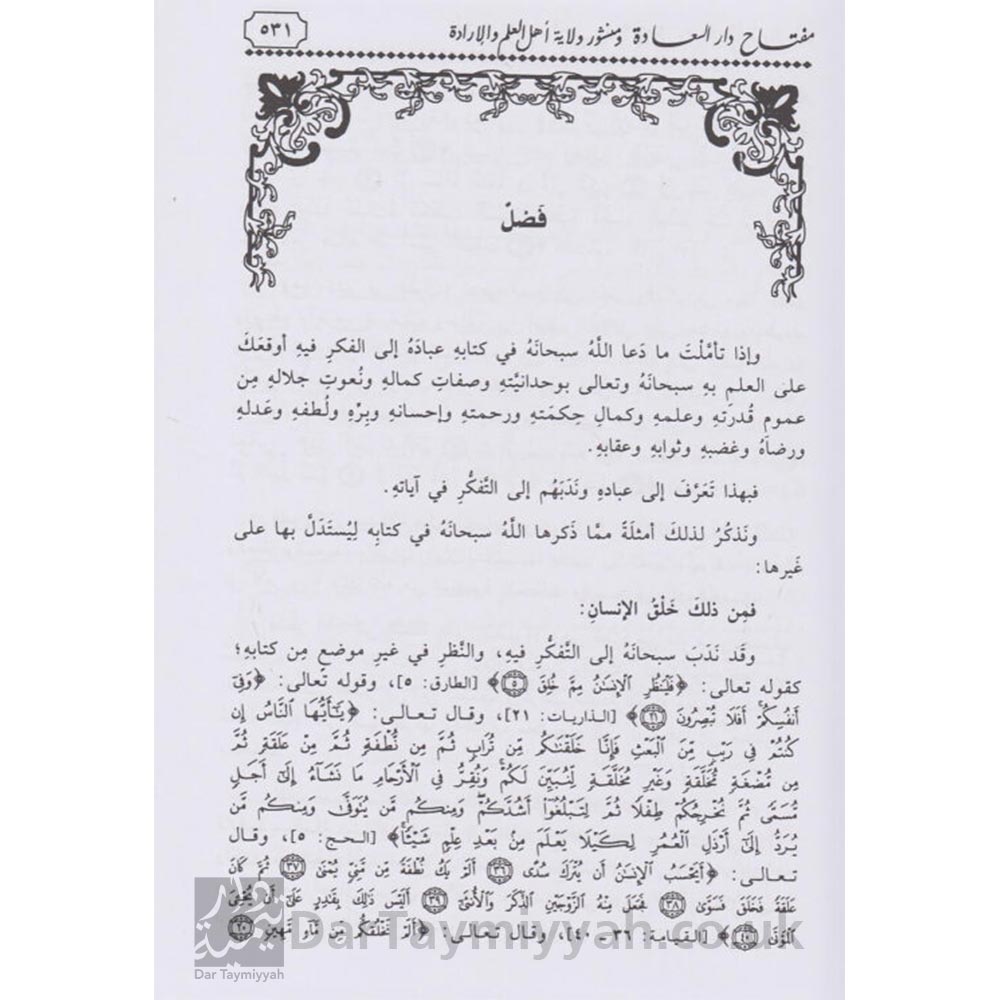 مفتاح دار السعادة ومنشور ولاية أهل العلم والإرادة
٥٣١
فَصْلٌ
وإذا تأمَّلْتَ ما دَعا اللَّهُ سبحانَهُ في كتابهِ عبادَهُ إلى الفكرِ فيهِ أوقعَكَ
على العلمِ بهِ سبحانَهُ وتعالى بوحدانيَّتهِ وصفاتِ كمالهِ ونُعوتِ جلالهِ مِن
عمومِ قُدرَتهِ وعلمهِ وكمالِ حِكمَتهِ ورحمتهِ وإحسانهِ وبِرِّهِ ولُطفهِ وعَدلهِ
ورضاهُ وغضبهِ وثوابهِ وعقابهِ.
فبهذا تَعَرَّفَ إلى عبادهِ ونَدَبَهُم إلى التَّفكُّرِ في آياتهِ.
ونَذكُرُ لذلكَ أمثلَةً ممَّا ذَكرها اللَّهُ سبحانَهُ في كتابِه لِيُستَدَلَّ بها على
غَيرها:
فمِن ذلكَ خَلْقُ الإنسانِ:
وقَد نَدَبَ سبحانَهُ إلى التَّفكُّرِ فيهِ، والنَّظرِ في غيرِ موضعٍ مِن كتابهِ؛
كقوله تعالى: ﴿فَلْيَنظُرِ ٱلْإِنسَٰنُ مِمَّ خُلِقَ ۝٥﴾ [الطارق: ٥]، وقوله تعالى: ﴿وَفِىٓ
أَنفُسِكُمْ ۚ أَفَلَا تُبْصِرُونَ ۝٢١﴾ [الذاريات: ٢١]، وقال تعالى: ﴿يَٰٓأَيُّهَا ٱلنَّاسُ إِن
كُنتُمْ فِى رَيْبٍ مِّنَ ٱلْبَعْثِ فَإِنَّا خَلَقْنَٰكُم مِّن تُرَابٍ ثُمَّ مِن نُّطْفَةٍ ثُمَّ مِنْ عَلَقَةٍ ثُمَّ
مِن مُّضْغَةٍ مُّخَلَّقَةٍ وَغَيْرِ مُخَلَّقَةٍ لِّنُبَيِّنَ لَكُمْ ۚ وَنُقِرُّ فِى ٱلْأَرْحَامِ مَا نَشَآءُ إِلَىٰٓ أَجَلٍ
مُّسَمًّى ثُمَّ نُخْرِجُكُمْ طِفْلًا ثُمَّ لِتَبْلُغُوٓا۟ أَشُدَّكُمْ ۖ وَمِنكُم مَّن يُتَوَفَّىٰ وَمِنكُم مَّن
يُرَدُّ إِلَىٰٓ أَرْذَلِ ٱلْعُمُرِ لِكَيْلَا يَعْلَمَ مِنۢ بَعْدِ عِلْمٍ شَيْـًٔا ۚ﴾ [الحج: ٥]، وقال
تعالى: ﴿أَيَحْسَبُ ٱلْإِنسَٰنُ أَن يُتْرَكَ سُدًى ۝٣٦ أَلَمْ يَكُ نُطْفَةً مِّن مَّنِىٍّ يُمْنَىٰ ۝٣٧ ثُمَّ كَانَ
عَلَقَةً فَخَلَقَ فَسَوَّىٰ ۝٣٨ فَجَعَلَ مِنْهُ ٱلزَّوْجَيْنِ ٱلذَّكَرَ وَٱلْأُنثَىٰٓ ۝٣٩ أَلَيْسَ ذَٰلِكَ بِقَٰدِرٍ عَلَىٰٓ أَن يُحْۦِىَ
ٱلْمَوْتَىٰ ۝٤٠﴾ [القيامة: ٣٦ - ٤٠]، وقال تعالى: ﴿أَلَمْ نَخْلُقكُّم مِّن مَّآءٍ مَّهِينٍ ۝٢٠
DarTaymiyyah.co.uk
Dar Taymiyyah